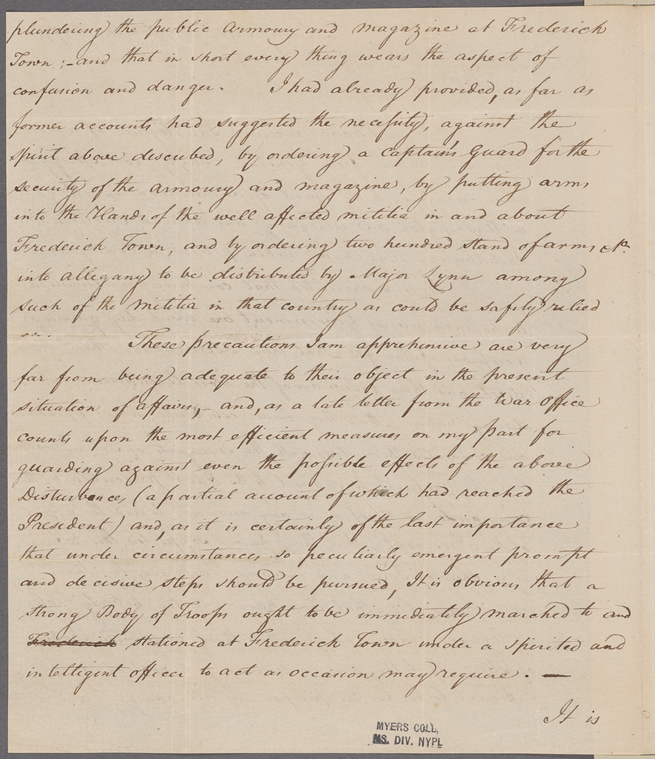 plundering the public Armoury and magazine at Frederick
Town;- and that in short every thing wears the aspect of
confusion and danger. I had already provided, as far as
former accounts had suggested the necessity, against the
spirit above described, by ordering a Captain's Guard for the
security of the armoury and magazine, by putting arms
into the Hands of the well affected militia in and about
Frederick Town, and by ordering two hundred stand of arms &c.
into allegany to be distributed by Major Lynn among
such of the militia in that country as could be safely relied
on.
These precautions I am apprehensive are very
far from being adequate to their object in the present
situation of affairs,- and, as a late letter from the War Office
counts upon the most efficient measures on my part for
guarding against even the possible effects of the above
Disturbance, (a partial account of which had reached the
President) and, as it is certainly of the last importance
that under circumstances so peculiarly emergent prompt
and decisive steps should be pursued, It is obvious that a
strong Body of Troops ought to be immediately marched to and
Frederick stationed at Frederick Town under a spirited and
intelligent officer to act as occasion may require. —
It is
MYERS COLL,
MS. DIV. NYPL